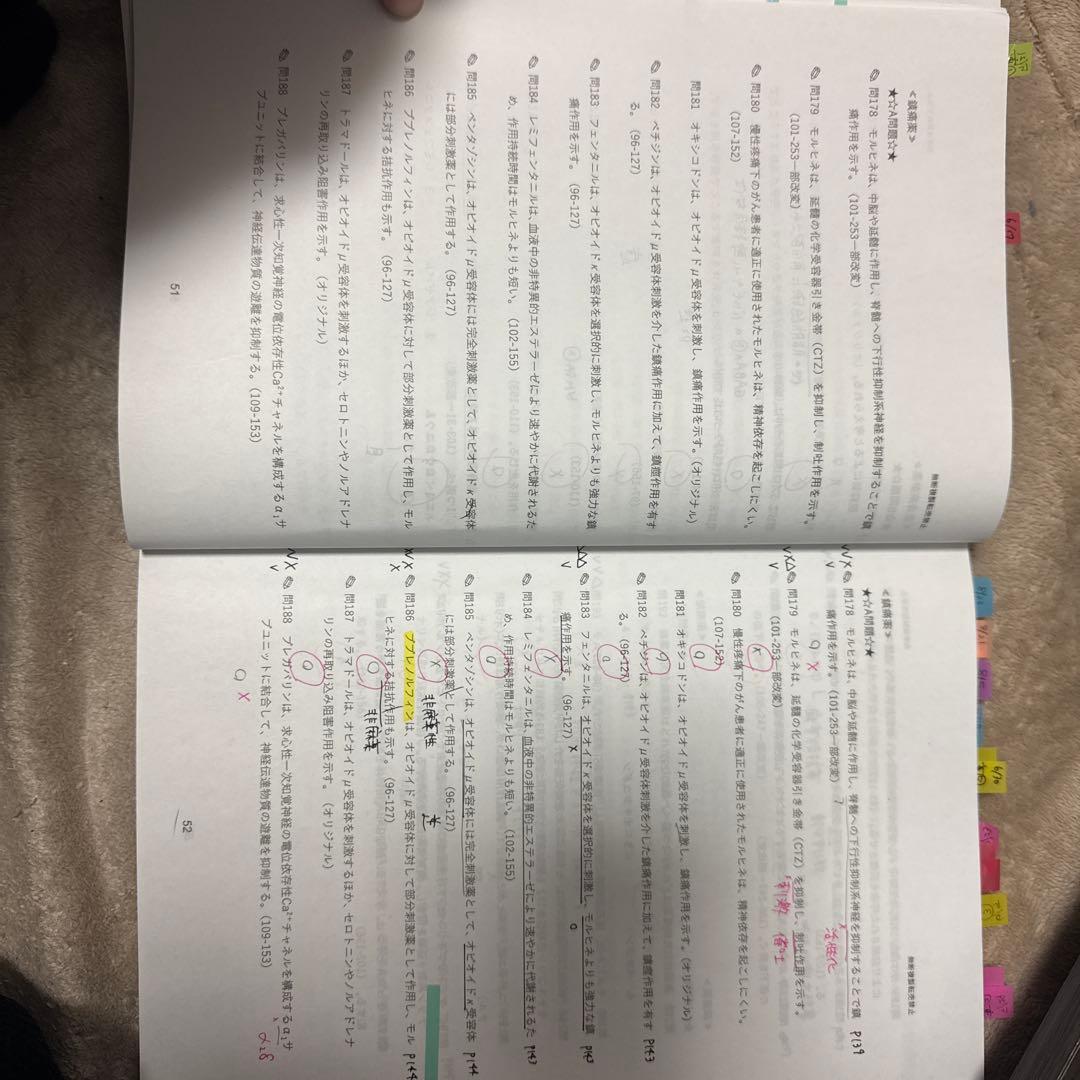 無断複製転売禁止
＜鎮痛薬＞
★☆A問題☆★
問178 モルヒネは、中脳や延髄に作用し、脊髄への下行性抑制系神経を抑制することで鎮
痛作用を示す。（101-253一部改変）
問179 モルヒネは、延髄の化学受容器引き金帯（CTZ）を抑制し、制吐作用を示す。
（101-253一部改変）
問180 慢性疼痛下のがん患者に適正に使用されたモルヒネは、精神依存を起こしにくい。
（107-152）
問181 オキシコドンは、オピオイドμ受容体を刺激し、鎮痛作用を示す。（オリジナル）
問182 ペチジンは、オピオイドμ受容体刺激を介した鎮痛作用に加えて、鎮痙作用を有す
る。（96-127）
問183 フェンタニルは、オピオイドκ受容体を選択的に刺激し、モルヒネよりも強力な鎮
痛作用を示す。（96-127）
問184 レミフェンタニルは、血液中の非特異的エステラーゼにより速やかに代謝されるた
め、作用持続時間はモルヒネよりも短い。（102-155）
問185 ペンタゾシンは、オピオイドμ受容体には完全刺激薬として、オピオイドκ受容体
には部分刺激薬として作用する。（96-127）
問186 ブプレノルフィンは、オピオイドμ受容体に対して部分刺激薬として作用し、モル
ヒネに対する拮抗作用も示す。（96-127）
問187 トラマドールは、オピオイドμ受容体を刺激するほか、セロトニンやノルアドレナ
リンの再取り込み阻害作用を示す。（オリジナル）
問188 プレガバリンは、求心性一次知覚神経の電位依存性Ca²⁺チャネルを構成するα₁サ
ブユニットに結合して、神経伝達物質の遊離を抑制する。（109-153）
51
無断複製転売禁止
＜鎮痛薬＞
★☆A問題☆★
問178 モルヒネは、中脳や延髄に作用し、脊髄への下行性抑制系神経を抑制することで鎮 P139
活性化
痛作用を示す。（101-253一部改変）
問179 モルヒネは、延髄の化学受容器引き金帯（CTZ）を抑制し、制吐作用を示す。
刺激 催吐
（101-253一部改変）
問180 慢性疼痛下のがん患者に適正に使用されたモルヒネは、精神依存を起こしにくい。
（107-152）
問181 オキシコドンは、オピオイドμ受容体を刺激し、鎮痛作用を示す。（オリジナル）
問182 ペチジンは、オピオイドμ受容体刺激を介した鎮痛作用に加えて、鎮痙作用を有す P143
る。（96-127）
問183 フェンタニルは、オピオイドκ受容体を選択的に刺激し、モルヒネよりも強力な鎮 P143
痛作用を示す。（96-127）
問184 レミフェンタニルは、血液中の非特異的エステラーゼにより速やかに代謝されるた P143
め、作用持続時間はモルヒネよりも短い。（102-155）
問185 ペンタゾシンは、オピオイドμ受容体には完全刺激薬として、オピオイドκ受容体 P144
には部分刺激薬として作用する。（96-127） 逆
非麻薬性
問186 ブプレノルフィンは、オピオイドμ受容体に対して部分刺激薬として作用し、モル P144
ヒネに対する拮抗作用も示す。（96-127）
非麻薬
問187 トラマドールは、オピオイドμ受容体を刺激するほか、セロトニンやノルアドレナ
リンの再取り込み阻害作用を示す。（オリジナル）
問188 プレガバリンは、求心性一次知覚神経の電位依存性Ca²⁺チャネルを構成するα₁サ
α₂δ
ブユニットに結合して、神経伝達物質の遊離を抑制する。（109-153）
52